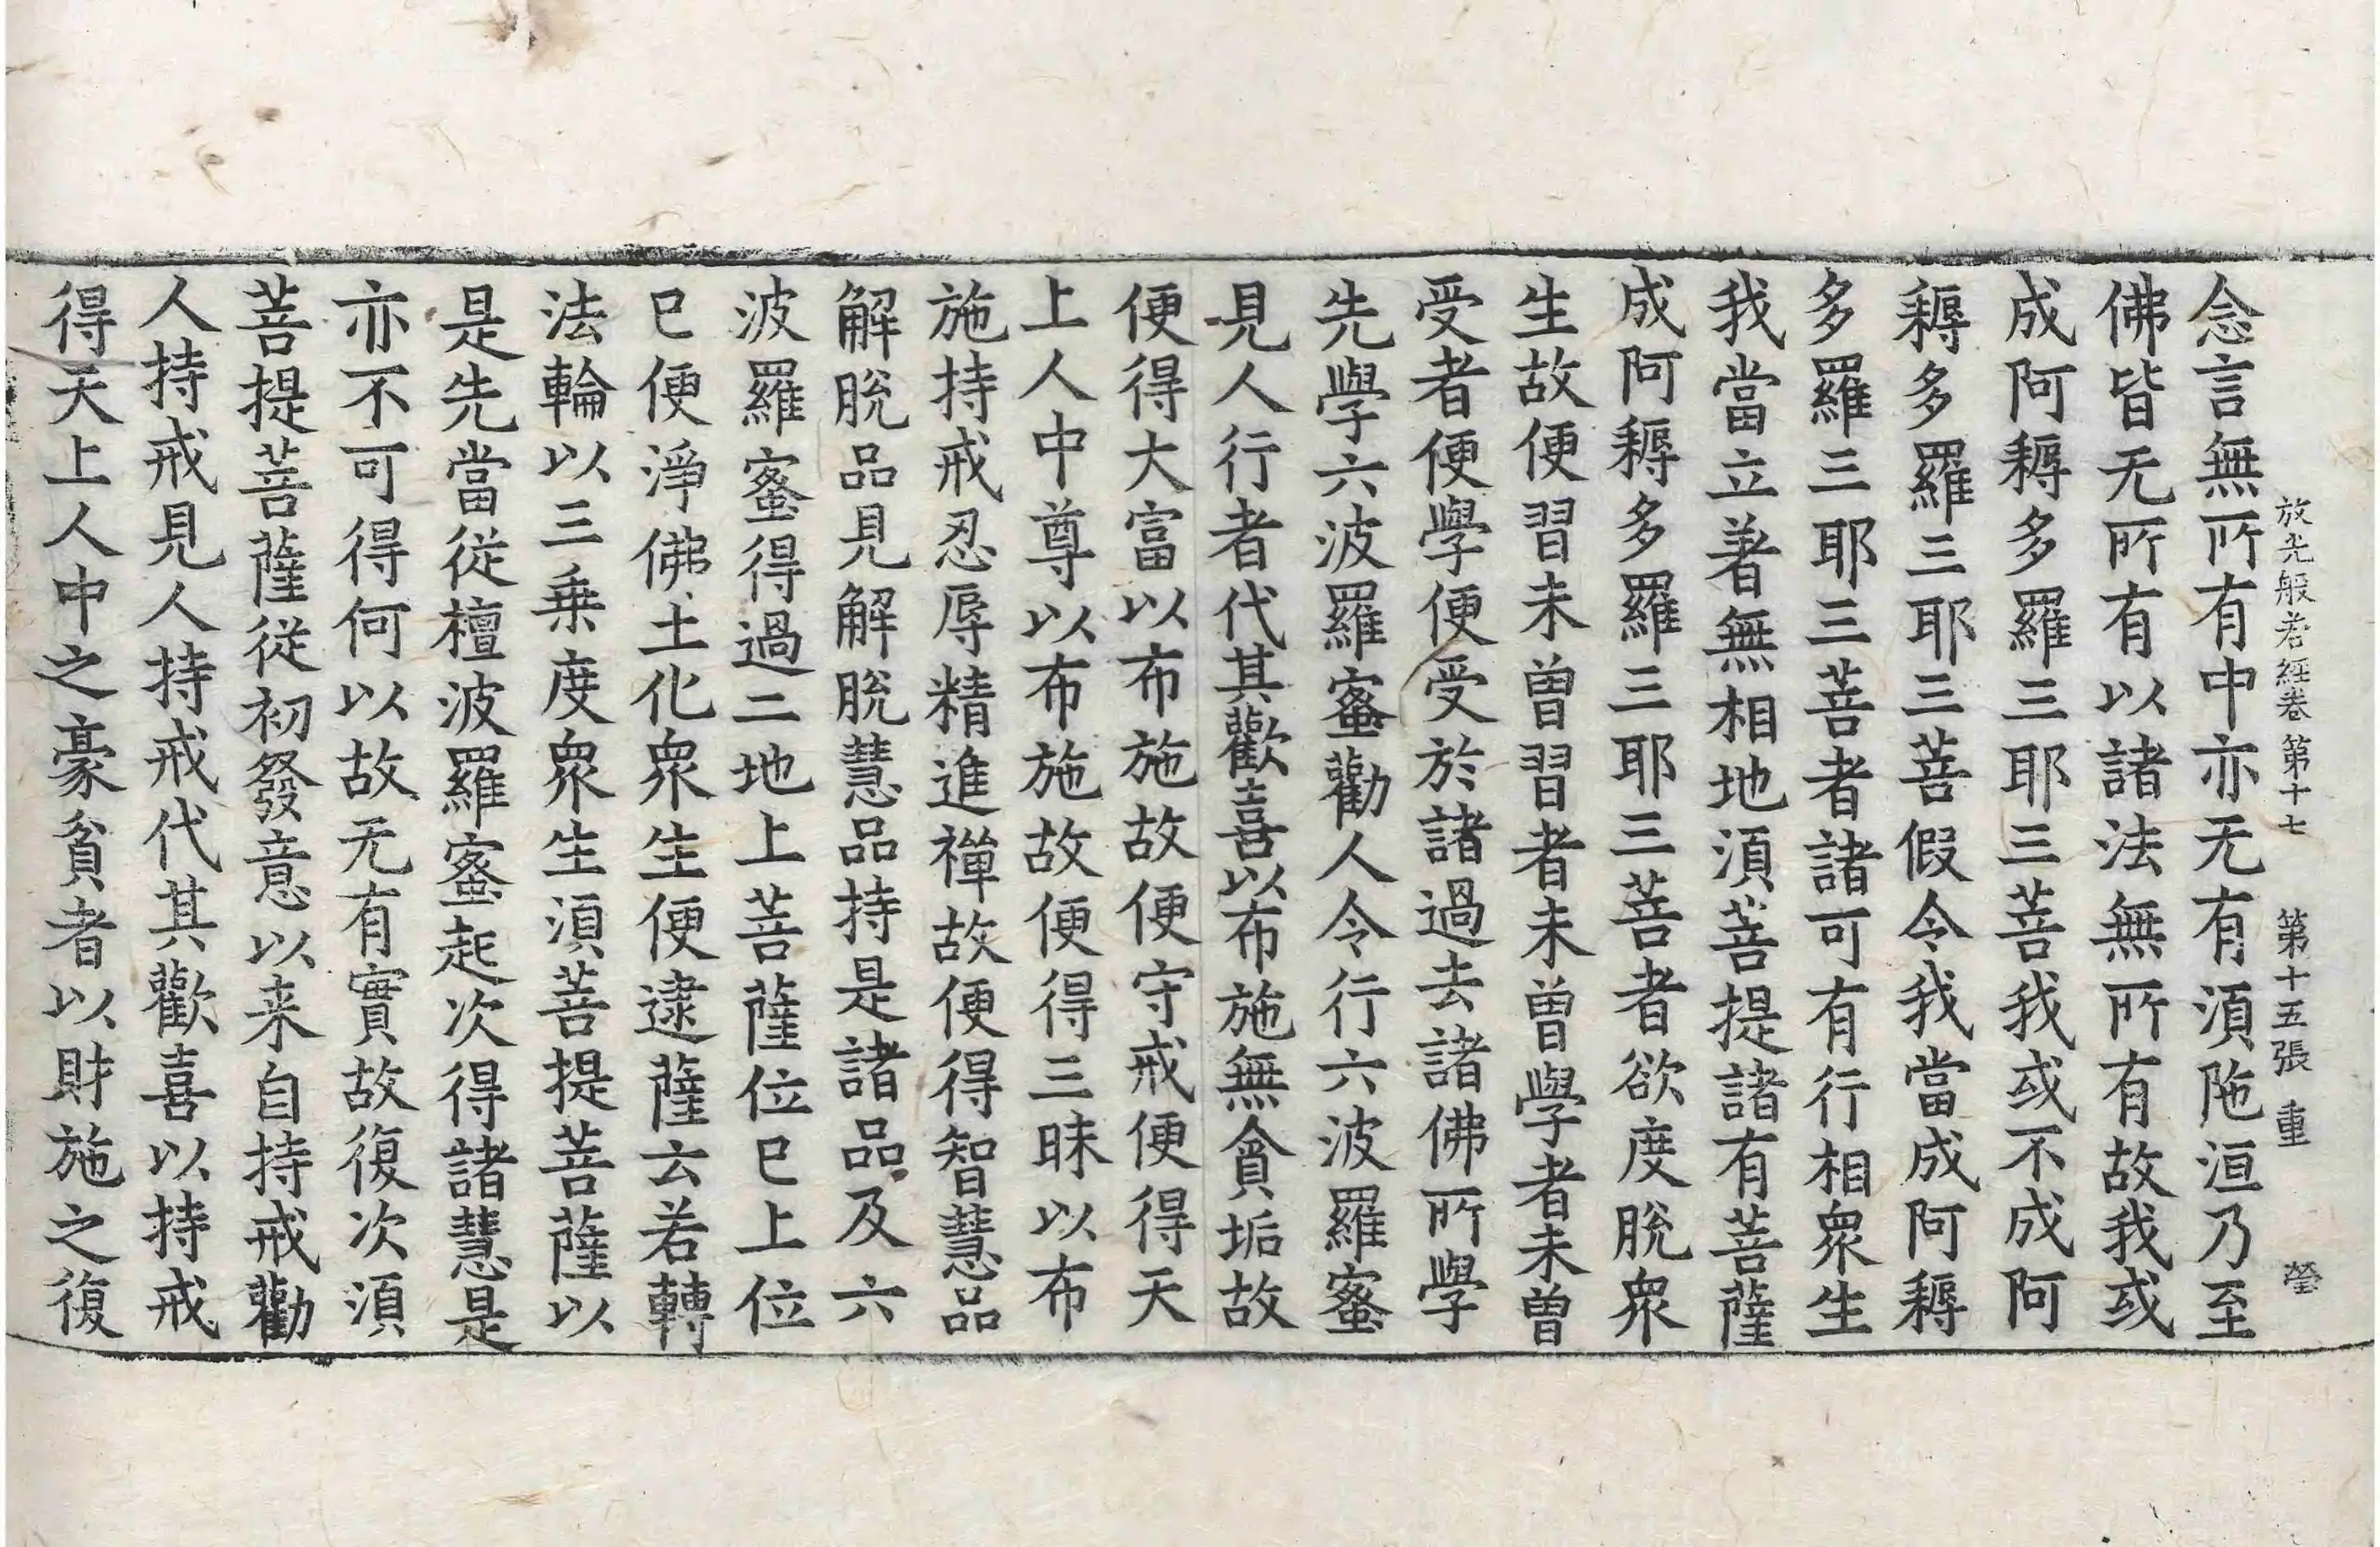 放光般若經卷第十七 第十五張 重 瑩
念言無所有中亦无有湏陁洹乃至
佛皆无所有以諸法無所有故我或
成阿耨多羅三耶三菩我或不成阿
耨多羅三耶三菩假令我當成阿耨
多羅三耶三菩者諸可有行相衆生
我當立著無相地湏菩提諸有菩薩
成阿耨多羅三耶三菩者欲度脫衆
生故便習未曾習者未曾學者未曾
受者便學便受於諸過去諸佛所學
先學六波羅蜜勸人令行六波羅蜜
見人行者代其歡喜以布施無貪垢故
便得大富以布施故便守戒便得天
上人中尊以布施故便得三昧以布
施持戒忍辱精進禪故便得智慧品
解脫品見解脫慧品持是諸品及六
波羅蜜得過二地上菩薩位已上位
已便淨佛土化衆生便逮薩云若轉
法輪以三乗度衆生湏菩提菩薩以
是先當從檀波羅蜜起次得諸慧是
亦不可得何以故无有實故復次湏
菩提菩薩從初發意以来自持戒勸
人持戒見人持戒代其歡喜以持戒
得天上人中之豪貧者以財施之復